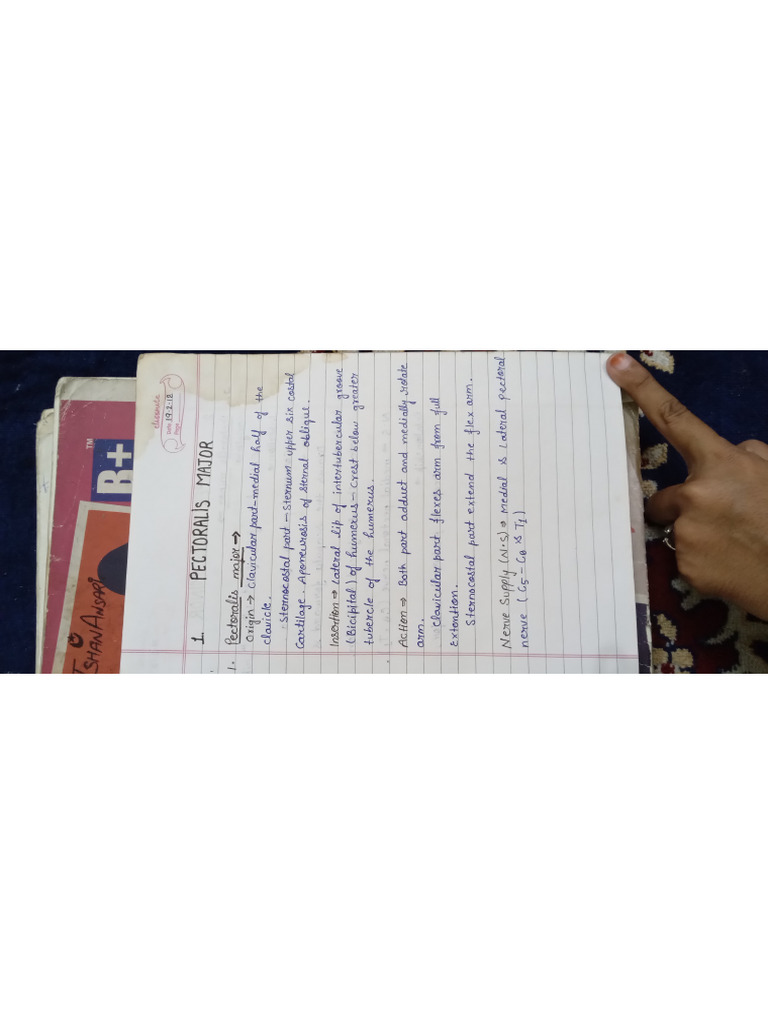 classmate
Date 19-2-18
Page
1. PECTORALIS MAJOR
1. Pectoralis major →
Origin → Clavicular part-medial half of the
clavicle.
Sternocostal part - Sternum upper six costal
Cartilage. Aponeurosis of sternal oblique.
Insertion → Lateral lip of intertubercular groove
(Bicipital) of humerus - Crest below greater
tubercle of the humerus
Action → Both part adduct and medially rotate
arm.
Clavicular part flexes arm from full
Extention.
Sternocostal part extend the flex arm.
Nerve Supply (N.S) → Medial & Lateral pectoral
nerve (C5 - C8 & T1)
TM
B+
SHAN ANSARI